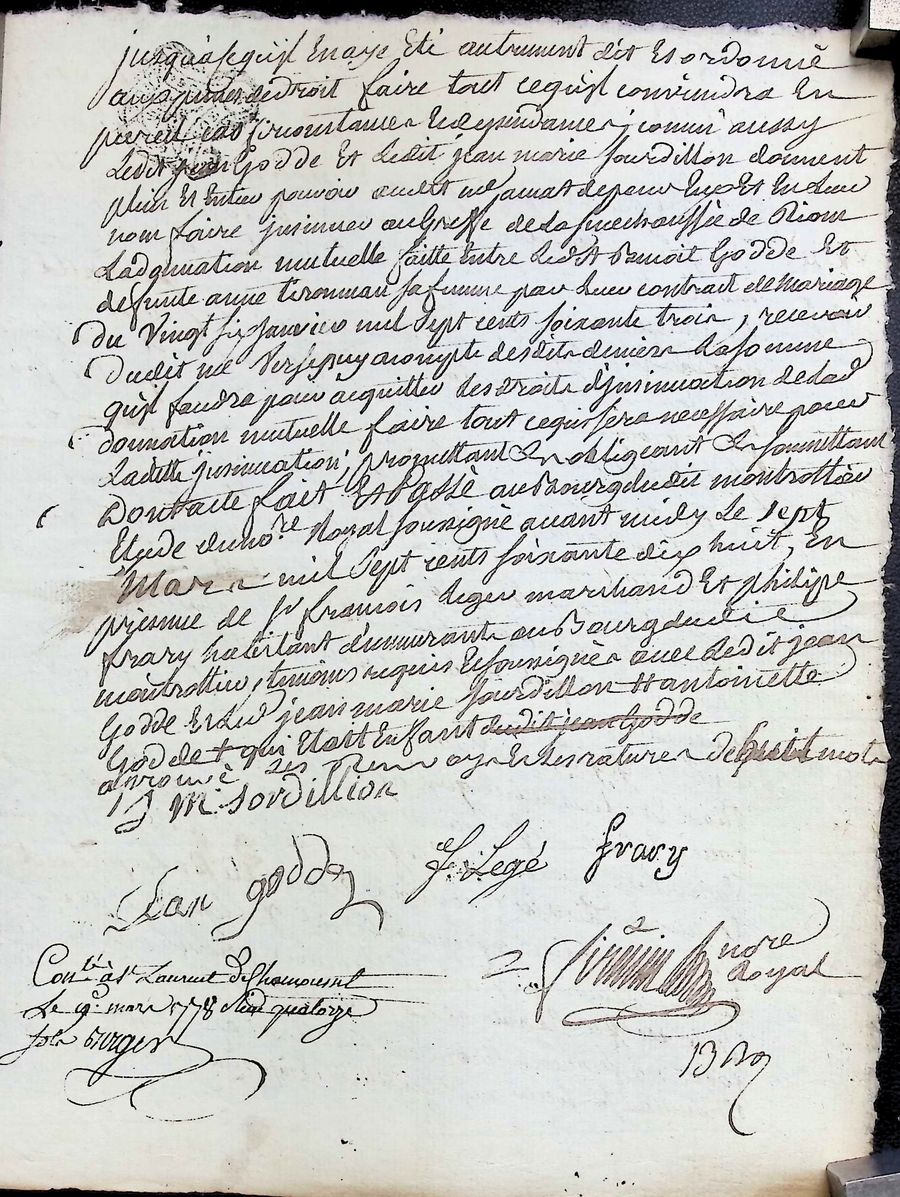 jusqu'a ce qu'il en aye eté autrement dit et ordonné
de droit faire tout ce qu'il conviendra en
pareil cas circonstances et dependances, comm' aussy
Ledit jean Godde et Ledit jean marie Sourdillon donnent
plein et entier pouvoir audit me amat de pour eux et en leur
nom faire jnsinuer au Greffe de La senechaussée de Riom
La donnation mutuelle faitte entre Ledit Benoit Godde et
defunte anne sa femme par leur contrat de mariage
du vingt six janvier mil sept cents soixante trois, recevoir
dudit me Versepuy a compte desdits deniers La somme
qu'il faudra pour acquitter les droits d'jnsinuation de lad
donnation mutuelle faire tout ce qui sera necessaire pour
Laditte jnsinuation, promettant en obligeant en soumettant
Dont acte fait Et Passé au Bourg dudit montrottier
Etude du nore Royal soussigné avant midy Le sept
Mars mil sept cents soixante dix huit, En
presence de sr francois Leger marchand Et philippe
frary habitant demeurants au Bourg dudit
montrottier, temoins requis et soussignés avec Ledit jean
Godde et Led jean marie Sourdillon et antoinette
Godde + qui Etait Enfant dudit jean Godde
approuvé Les renvoys et Les ratures de huit mots
J M Sordillion
Jean godde
f. Legé
frary
nore
Royal
Conlé à st Laurent De Chamousset
Le 9e mars 1778 Reçu quatorze
sols